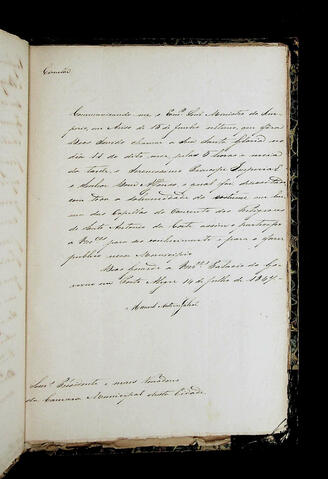 Communicando me o Exmo Snr Ministro do Im-
perio, em Aviso de 15 de Junho ultimo, que fôra
Deos Servido chamar á Sua Santa Gloria no
dia 11 do dito mez, pelas horas e meia
da tarde, o Serenissimo Principe Imperial
o Senhor Dom Affonso, o qual foi depositado
com toda a solemnidade do costume em hu-
ma das Capellas do Convento dos Religiosos
de Santo Antonio da Corte assim o participo
a Vmces para seu conhecimento e para o fazer
publico nesse Municipio
Deos Guarde a Vmces Palacio do Go-
verno em Porto Alegre 14 de Julho de 1847.
Manoel Antonio Galvão
Snres Presidente e mais Vereadores
da Camara Municipal desta Cidade.